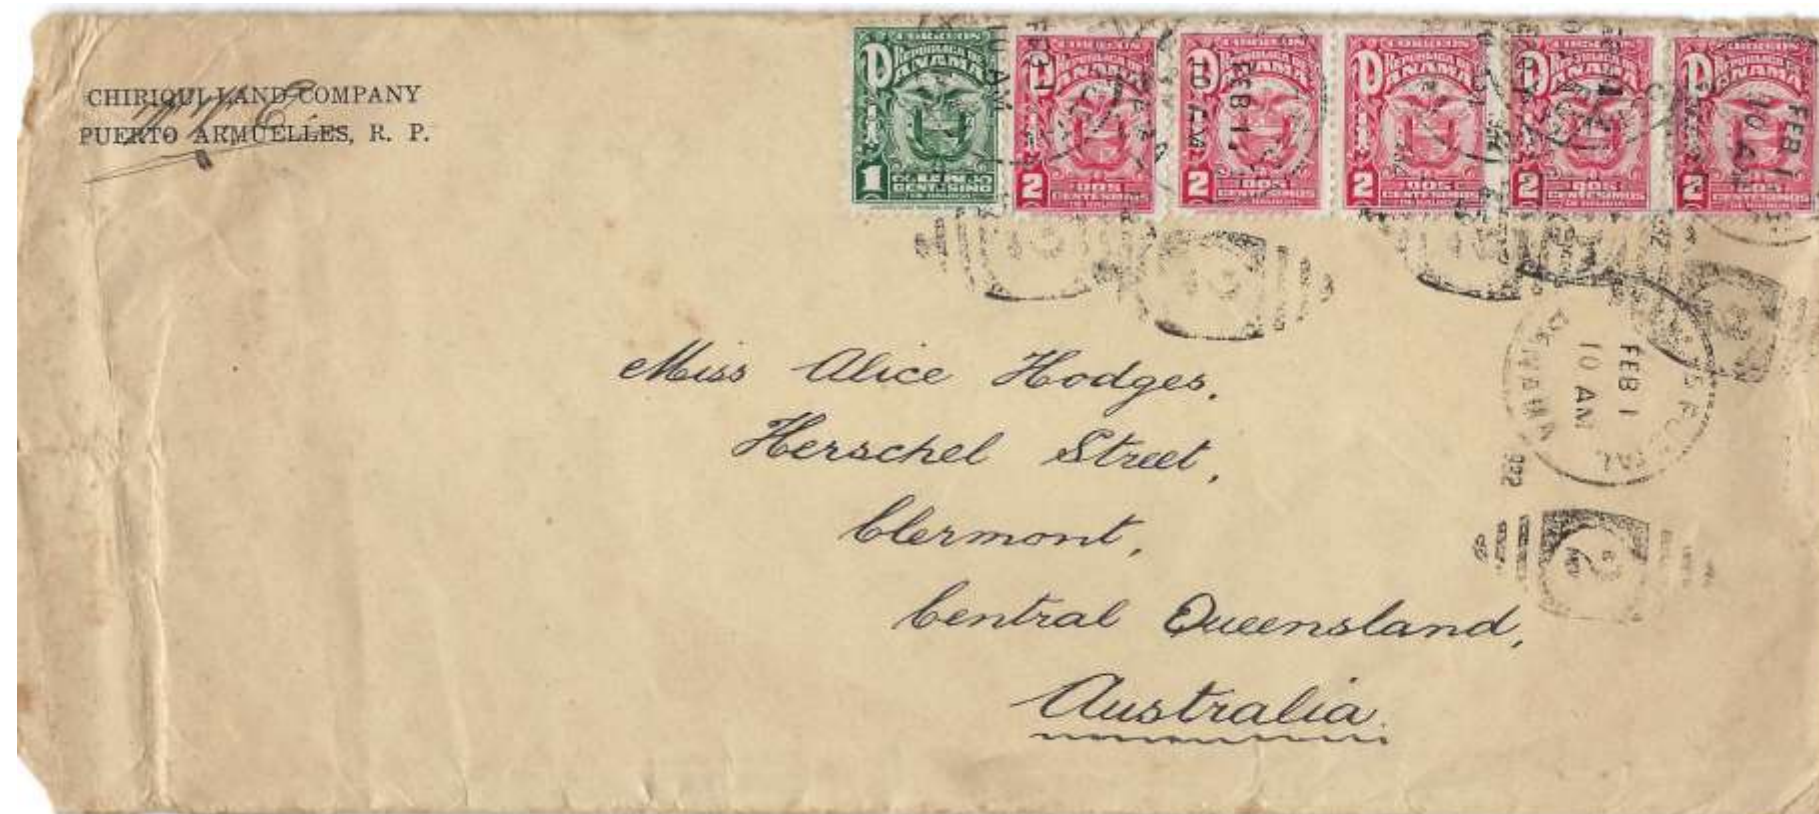 CHIRIQUI LAND COMPANY
PUERTO ARMUELLES, R. P.
CORREOS
REPUBLICA DE
PANAMA
1
UN
CENTESIMO
CORREOS
REPUBLICA DE
PANAMA
2
DOS
CENTESIMOS
CORREOS
REPUBLICA DE
PANAMA
2
DOS
CENTESIMOS
CORREOS
REPUBLICA DE
PANAMA
2
DOS
CENTESIMOS
CORREOS
REPUBLICA DE
PANAMA
2
DOS
CENTESIMOS
CORREOS
REPUBLICA DE
PANAMA
2
DOS
CENTESIMOS
FEB 1
10 AM
FEB 1
10 AM
Miss Alice Hodges,
Herschel Street,
Clermont,
Central Queensland,
Australia.
FEB 1
10 AM
PANAMA